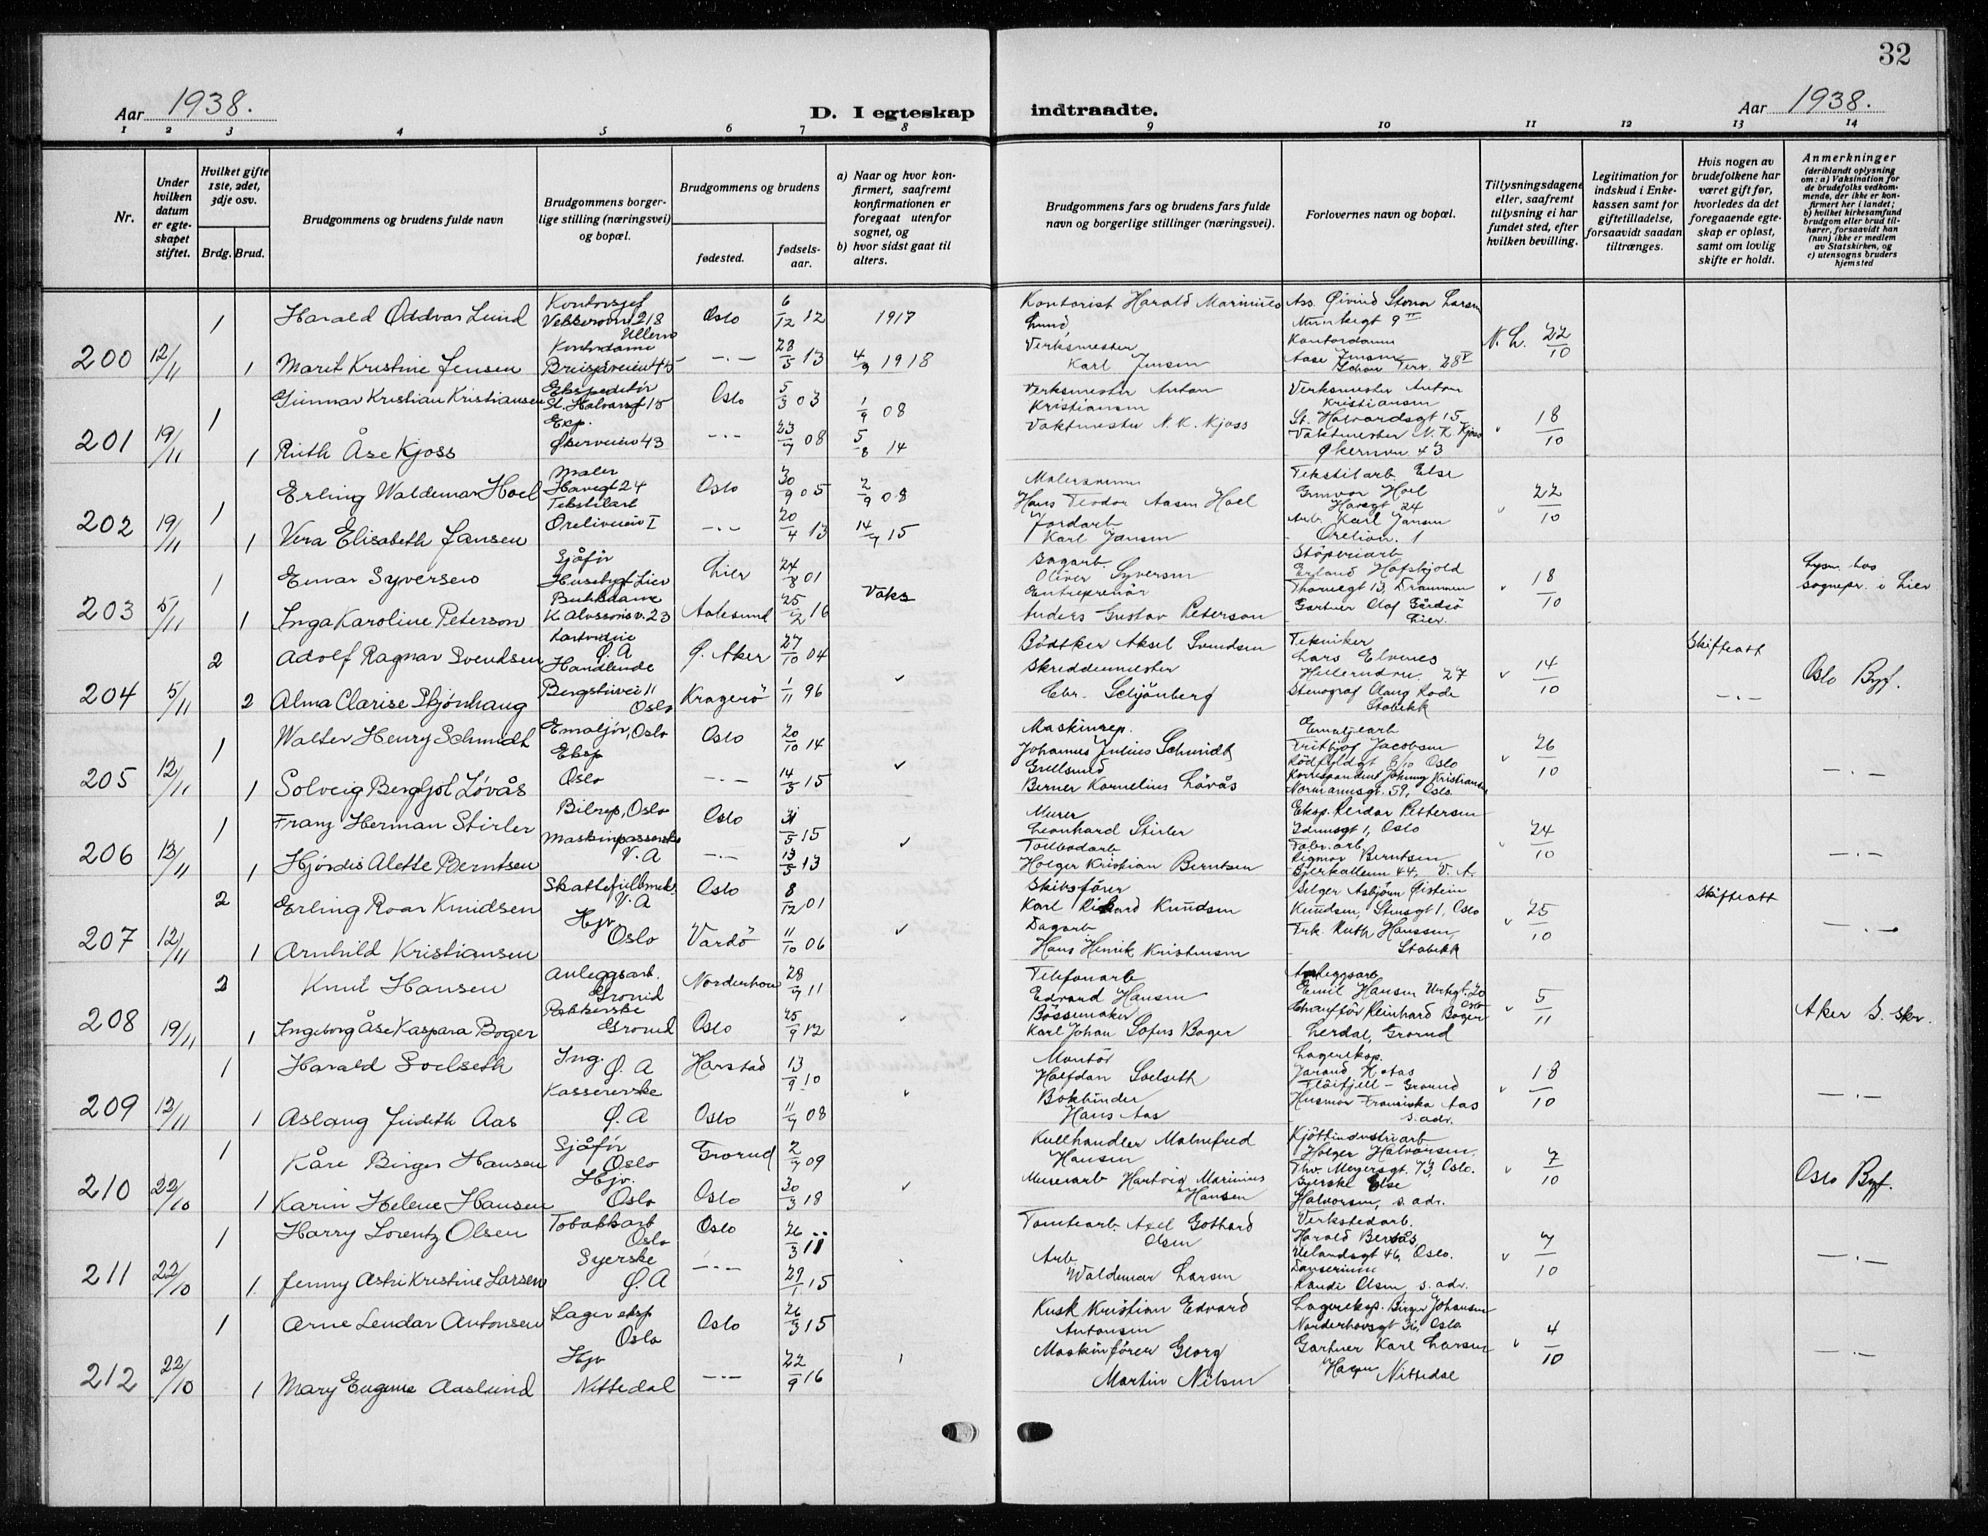 32
Aar 1938. D. I egteskap indtraadte. Aar 1938.
1 2 3 4 5 6 7 8 9 10 11 12 13 14
Nr.
Under hvilken datum er egteskapet stiftet.
Hvilket gifte 1ste, 2det, 3dje osv.
Brdg. Brud.
Brudgommens og brudens fulde navn
Brudgommens borgerlige stilling (næringsvei) og bopæl.
Brudgommens og brudens
fødested.
fødselsaar.
a) Naar og hvor konfirmert, saafremt konfirmationen er foregaat utenfor sognet, og
b) hvor sidst gaat til alters.
Brudgommens fars og brudens fars fulde navn og borgerlige stillinger (næringsvei).
Forlovernes navn og bopæl.
Tillysningsdagene eller, saafremt tillysning ei har fundet sted, efter hvilken bevilling.
Legitimation for indskud i Enkekassen samt for giftetilladelse, forsaavidt saadan tiltrænges.
Hvis nogen av brudefolkene har været gift før, hvorledes da det foregaaende egteskap er opløst, samt om lovlig skifte er holdt.
Anmerkninger (deriblandt oplysning om: a) Vaksination for de brudefolks vedkommende, der ikke er konfirmert her i landet; b) hvilket kirkesamfund brudgom eller brud tilhører, forsaavidt han (hun) ikke er medlem av Statskirken, og c) utensogns bruders hjemsted
200 12/11 1 Harald Oddvar Lund Kontorsjef Ullern Oslo 6/12 12 1917 Kontorist Harald Marinius Lund, Ass. Øivind Larsen N. L. 22/10
1 Marit Kristine Jensen Kontordame -.- 28/5 13 4/9 1918 Verksmester Karl Jensen Kontordame Aase Jensen
201 19/11 1 Gunnar Kristian Kristiansen Ekspeditør St. Halvardsgt 15 Oslo 5/3 03 1/9 08 Verksmester Anton Kristiansen Verksmester Anton Kristiansen St. Halvardsgt 15 18/10
1 Ruth Åse Kjoss Eksp. Økernveien 43 -.- 23/7 08 5/8 14 Vaktmester N. K. Kjoss Vaktmester N. K. Kjoss Økernvn 43
202 19/11 1 Erling Waldemar Hoel Maler Havegt 24 Oslo 30/9 05 2/9 08 Malersvenn Hans Teodor Aasen Hoel Tekstilarb Else Gunvor Hoel Havegt 24 22/10
1 Vera Elisabeth Jansen Tekstilarb Oreliveien 1 -.- 20/4 13 14/7 15 Jordarb Karl Jansen Arb. Karl Jansen Oreliveien 1
203 5/11 1 Einar Syversen Sjåfør Lier Lier 24/8 01 Sagarb Oliver Syversen Støperiarb Erland Hafskjold Thornegt 13, Drammen 18/10 Lysn. hos sognepr. i Lier
1 Inga Karoline Peterson Butikdame K. Alvssons v. 23 Aalesund 25/2 16 Vaks Entreprenør Anders Gustav Peterson Gartner Olaf Gårdsø Lier
204 5/11 2 Adolf Ragnar Svendsen Ø. A Ø. Aker 27/10 04 Bødtker Aksel Svendsen Tekniker Lars Elvenes 27 14/10 Skifteatt Oslo Byf.
2 Alma Clarise Skjønhaug Handlende Bergslivei 11 Oslo Kragerø 1/11 96 Skreddermester Ebr. Schjønberg Stenograf Aaug Rode Stabekk -.-
205 12/11 1 Walter Henry Schmidt Emaljør, Oslo Oslo 20/10 14 Maskinrep. Johannes Julius Schmidt Emaljearb Fritjof Jacobsen Oslo 26/10 -.-
1 Solveig Bergljot Løvås Eksp Oslo -.- 14/5 15 Gullsmed Berner Kornelius Løvås Korrespondent Johnny Kristiansen Normannsgt. 59, Oslo.
206 13/11 1 Franz Herman Stirler Bilrep, Oslo Oslo 31/5 15 Murer Leonhard Stirler Eksp. Reidar Pettersen Idunsgt 1, Oslo 24/10 -.-
1 Hjørdis Alette Berntsen Maskinpasserske V. A -.- 13/5 13 Tollbodarb Holger Kristian Berntsen Fabr. arb Rigmor Berntsen Bjerkalleen 44, V. A.
207 12/11 2 Erling Roar Knudsen V. A Oslo 8/12 01 Skibsfører Karl Rikard Knudsen Selger Asbjørn Øistein Knudsen, Stensgt 1, Oslo 25/10 Skifteatt -.-
1 Arnhild Kristiansen Hjv Oslo Vardø 11/10 06 Dagarb Hans Henrik Kristensen Frk. Ruth Hanssen, Stabekk
208 19/11 2 Knut Hansen Anleggsarb. Grorud Norderhov 28/7 11 Telefonarb Edvard Hansen Anleggsarb Emil Hansen Oslo 5/11 Aker S. Skr.
1 Ingeborg Åse Kaspara Boger Pakkerske Grorud Oslo 25/9 12 Bøssemaker Karl Johan Sofus Boger Chauffør Reinhard Boger Lerdal, Grorud
209 12/11 1 Harald Soelseth Ing. Ø. A Harstad 13/9 10 Montør Halfdan Soelseth Lagereksp. Jarand H. Aas Fløifjell - Grorud 18/10 -.-
1 Aslaug Judith Aas Kassererske Ø. A Oslo 11/7 08 Bokbinder Hans Aas Husmor Fransiska Aas s. adr.
210 22/10 1 Kåre Birger Hansen Sjåfør Oslo Grorud 2/7 09 Kullhandler Malmfred Hansen Kjøttindustriarb Holger Halvorsen. Thv. Meyersgt. 73, Oslo. 7/10 Oslo Byf.
1 Karin Helene Hansen Hjv. Oslo Oslo 30/3 18 Murerarb Hartvig Marinius Hansen Syerske Else Halvorsen, s. adr.
211 22/10 1 Harry Lorentz Olsen Tobakkarb Oslo Oslo 26/3 11 Tomtearb Axel Gothard Olsen Verkstedarb. Harald Bersås Uelandsgt 46, Oslo. 7/10 -.-
1 Jenny Astri Kristine Larsen Syerske Ø. A -.- 29/1 15 Arb. Waldemar Larsen Danserinne Randi Olsen s. adr.
212 22/10 1 Arne Lendar Antonsen Lagereksp Oslo Oslo 26/3 15 Kusk Kristian Edvard Antonsen Lagereksp. Birger Johansen Norderhovsgt 36, Oslo 4/10 -.-
1 Mary Eugenie Aaslund Hjv Nittedal -.- 22/9 16 Maskinfører Georg Martin Nilsen Gartner Karl Larsen Hagen Nittedal